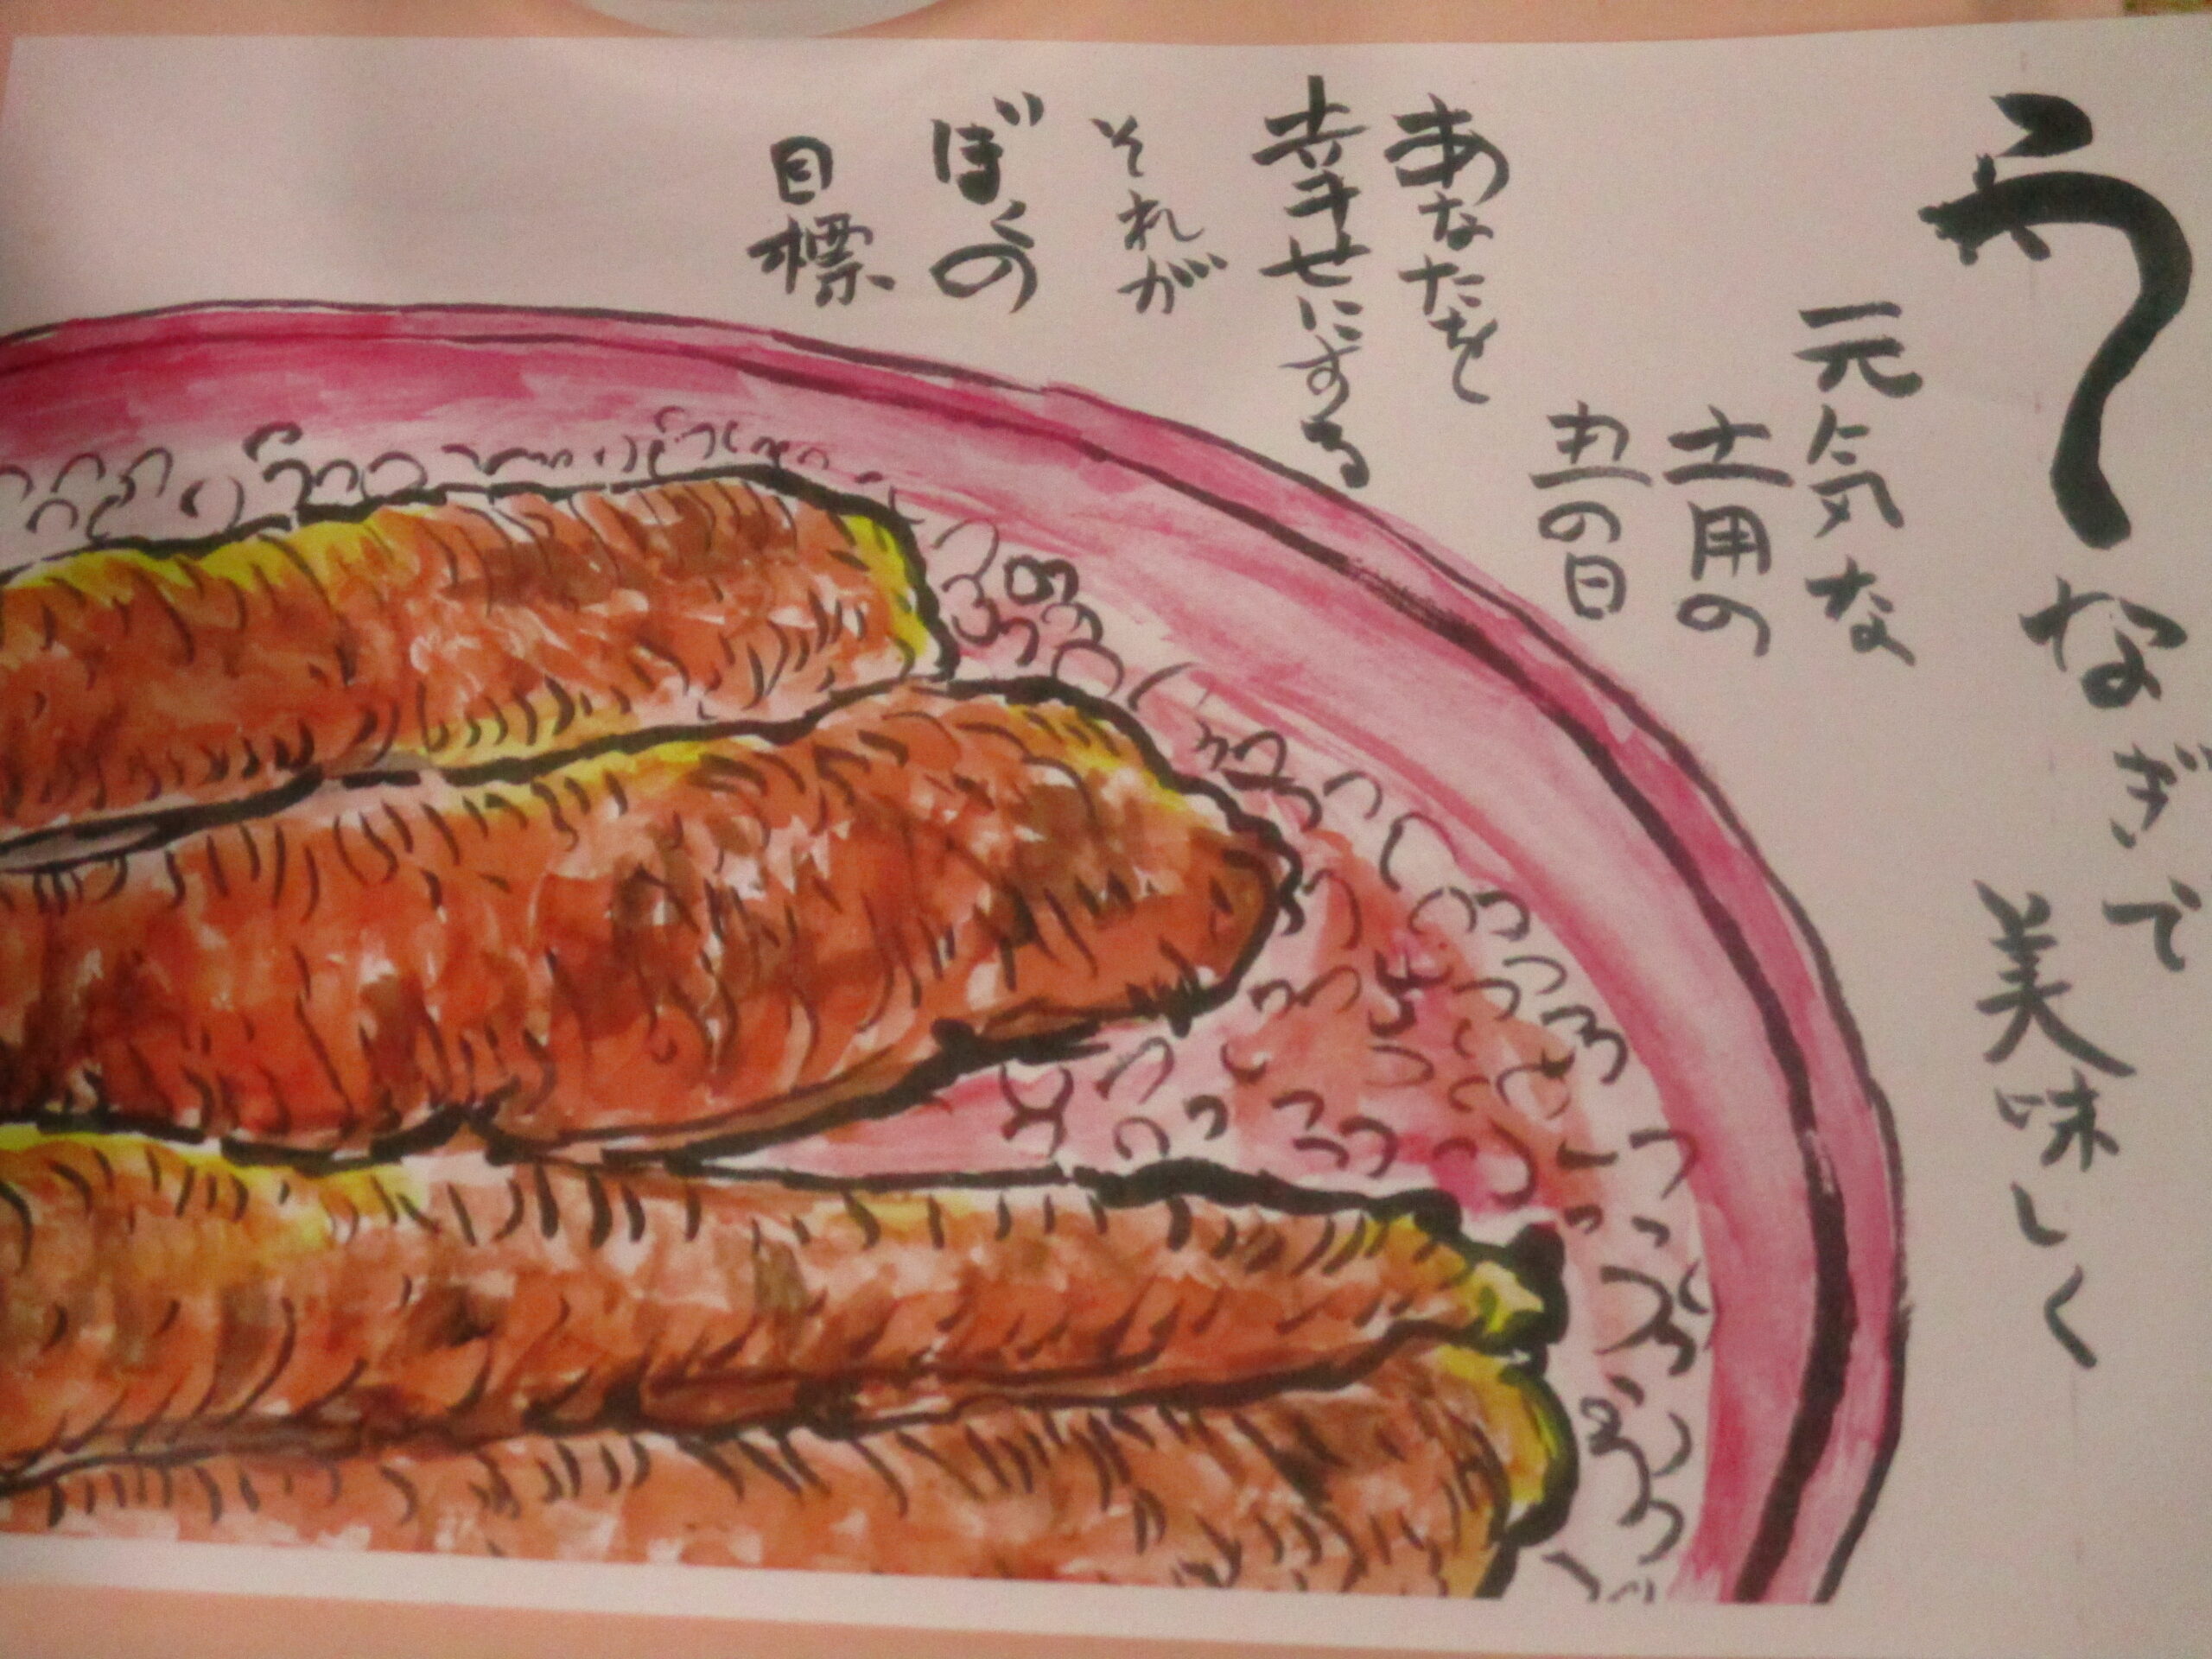 うなぎで
美味しく
元気な
土用の
丑の日
あなたを
幸せにする
それが
ぼくの
目標